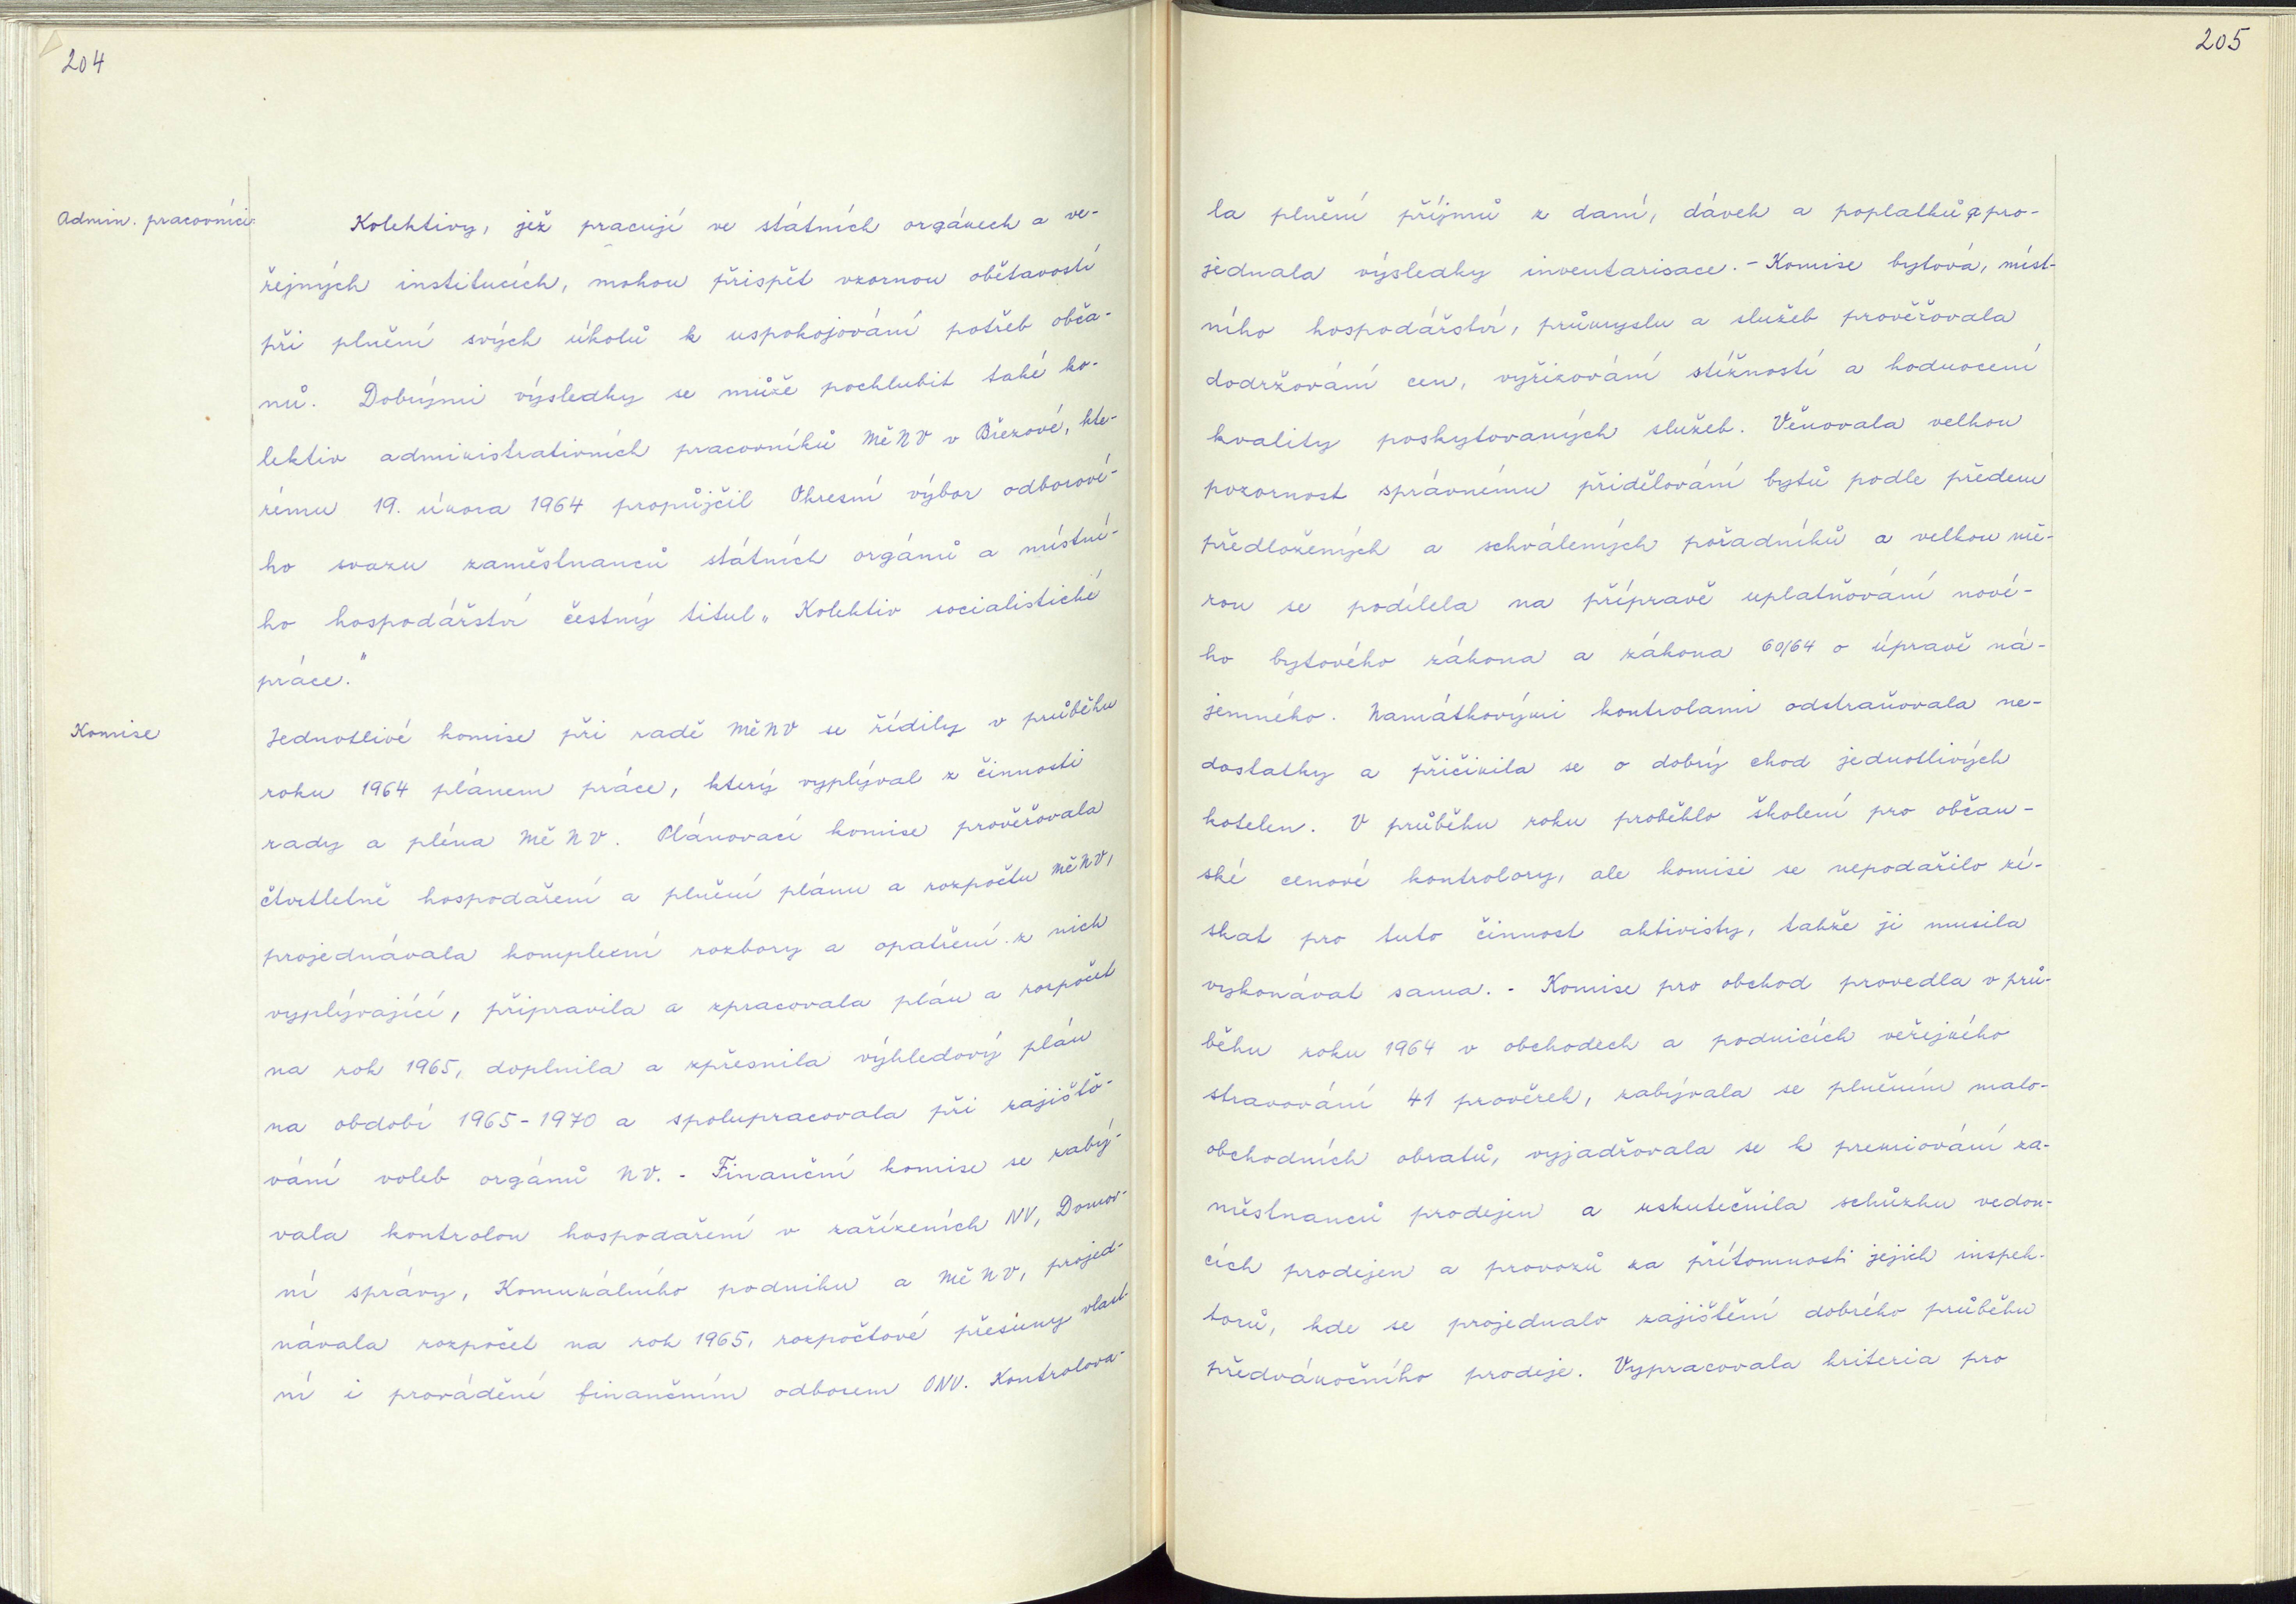 204
Admin. pracovníci:
Kolektivy, jež pracují ve státních orgánech a ve-
řejných institucích, mohou přispět vzornou obětavostí
při plnění svých úkolů k uspokojování potřeb obča-
nů. Dobrými výsledky se může pochlubit také ko-
lektiv administrativních pracovníků MěNV v Březové, kte-
rému 19. února 1964 propůjčil Okresní výbor odborové-
ho svazu zaměstnanců státních orgánů a místní-
ho hospodářství čestný titul „Kolektiv socialistické
práce."
Komise
Jednotlivé komise při radě MěNV se řídily v průběhu
roku 1964 plánem práce, který vyplýval z činnosti
rady a pléna MěNV. Plánovací komise prověřovala
čtvrtletně hospodaření a plnění plánu a rozpočtu MěNV,
projednávala komplexní rozbory a opatření z nich
vyplývající, připravila a zpracovala plán a rozpočet
na rok 1965, doplnila a zpřesnila výhledový plán
na období 1965-1970 a spolupracovala při zajišťo-
vání voleb orgánů NV. - Finanční komise se zabý-
vala kontrolou hospodaření v zařízeních NV, Domov-
ní správy, Komunálního podniku a MěNV, projed-
návala rozpočet na rok 1965, rozpočtové přesuny vlast-
ní i provádění finančním odborem ONV. Kontrolova-
205
la plnění příjmů z daní, dávek a poplatků a pro-
jednala výsledky inventarisace. - Komise bytová, míst-
ního hospodářství, průmyslu a služeb prověřovala
dodržování cen, vyřizování stížností a hodnocení
kvality poskytovaných služeb. Věnovala velkou
pozornost správnému přidělování bytů podle předem
předložených a schválených pořadníků a velkou mě-
rou se podílela na přípravě uplatňování nové-
ho bytového zákona a zákona 60/64 o úpravě ná-
jemného. Namátkovými kontrolami odstraňovala ne-
dostatky a přičinila se o dobrý chod jednotlivých
kotelen. V průběhu roku proběhlo školení pro občan-
ské cenové kontrolory, ale komisi se nepodařilo zí-
skat pro tuto činnost aktivisty, takže ji musila
vykonávat sama. - Komise pro obchod provedla v prů-
běhu roku 1964 v obchodech a podnicích veřejného
stravování 41 prověrek, zabývala se plněním malo-
obchodních obratů, vyjadřovala se k premiování za-
městnanců prodejen a uskutečnila schůzku vedou-
cích prodejen a provozů za přítomnosti jejich inspek-
torů, kde se projednalo zajištění dobrého průběhu
předvánočního prodeje. Vypracovala kriteria pro